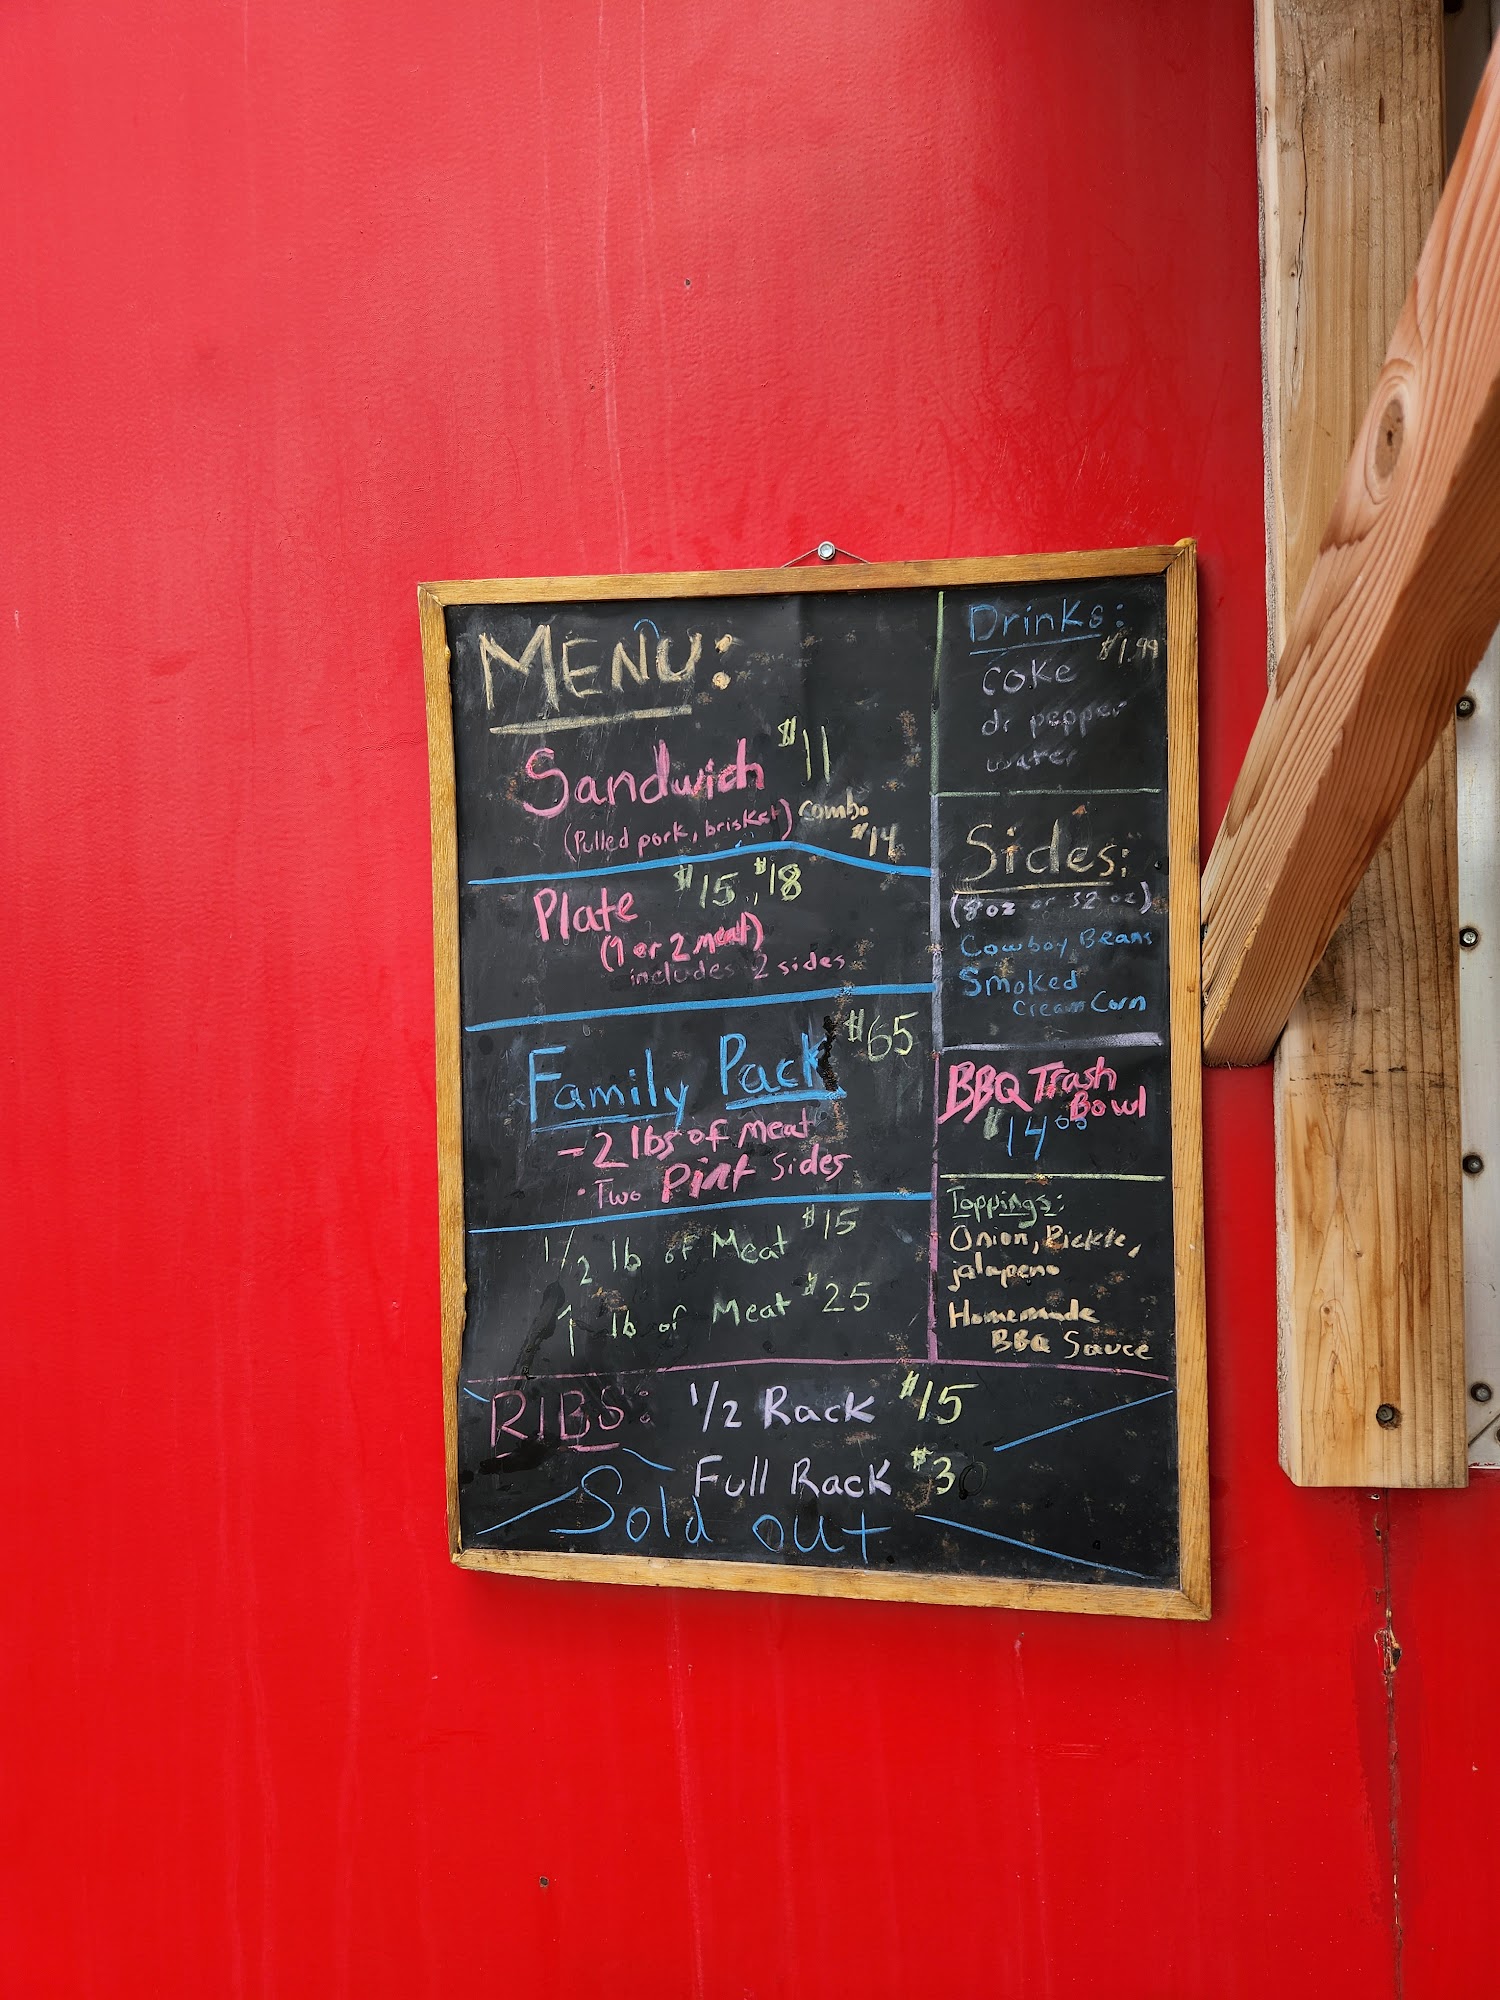 MENU:
Sandwich $11
(Pulled pork, brisket) combo
$14
Plate $15, $18
(1 or 2 meat)
includes 2 sides
Family Pack $65
- 2 lbs of meat
· Two Pint Sides
1/2 lb of Meat $15
1 lb of Meat $25
Drinks:
$1.99
coke
dr pepper
water
Sides:
(8oz or 32 oz)
Cowboy Beans
Smoked
Cream Corn
BBQ Trash
Bowl
$14.00
Toppings:
Onion, Pickle,
jalapeno
Homemade
BBQ Sauce
RIBS: 1/2 Rack $15
Full Rack $30
Sold out